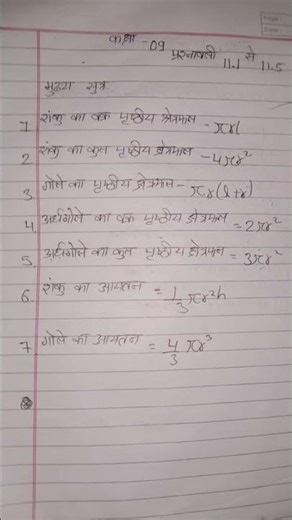 कक्षा -09
प्रश्नावली 11.1 से 11.5
मुख्य सूत्र
1 शंकु का वक्र पृष्ठीय क्षेत्रफल - πrl
2 शंकु का कुल पृष्ठीय क्षेत्रफल - 4πr²
3. गोले का पृष्ठीय क्षेत्रफल - πr(l+r)
4. अर्धगोले का वक्र पृष्ठीय क्षेत्रफल = 2πr²
5. अर्धगोले का कुल पृष्ठीय क्षेत्रफल = 3πr²
6. शंकु का आयतन = 1/3 πr²h
7. गोले का आयतन = 4/3 πr³